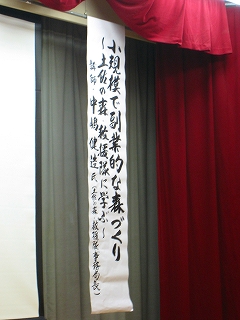 小規模で副業的な森づくり
～土佐の森・救援隊に学ぶ～
講師 中嶋健造氏(土佐の森・救援隊事務局長)